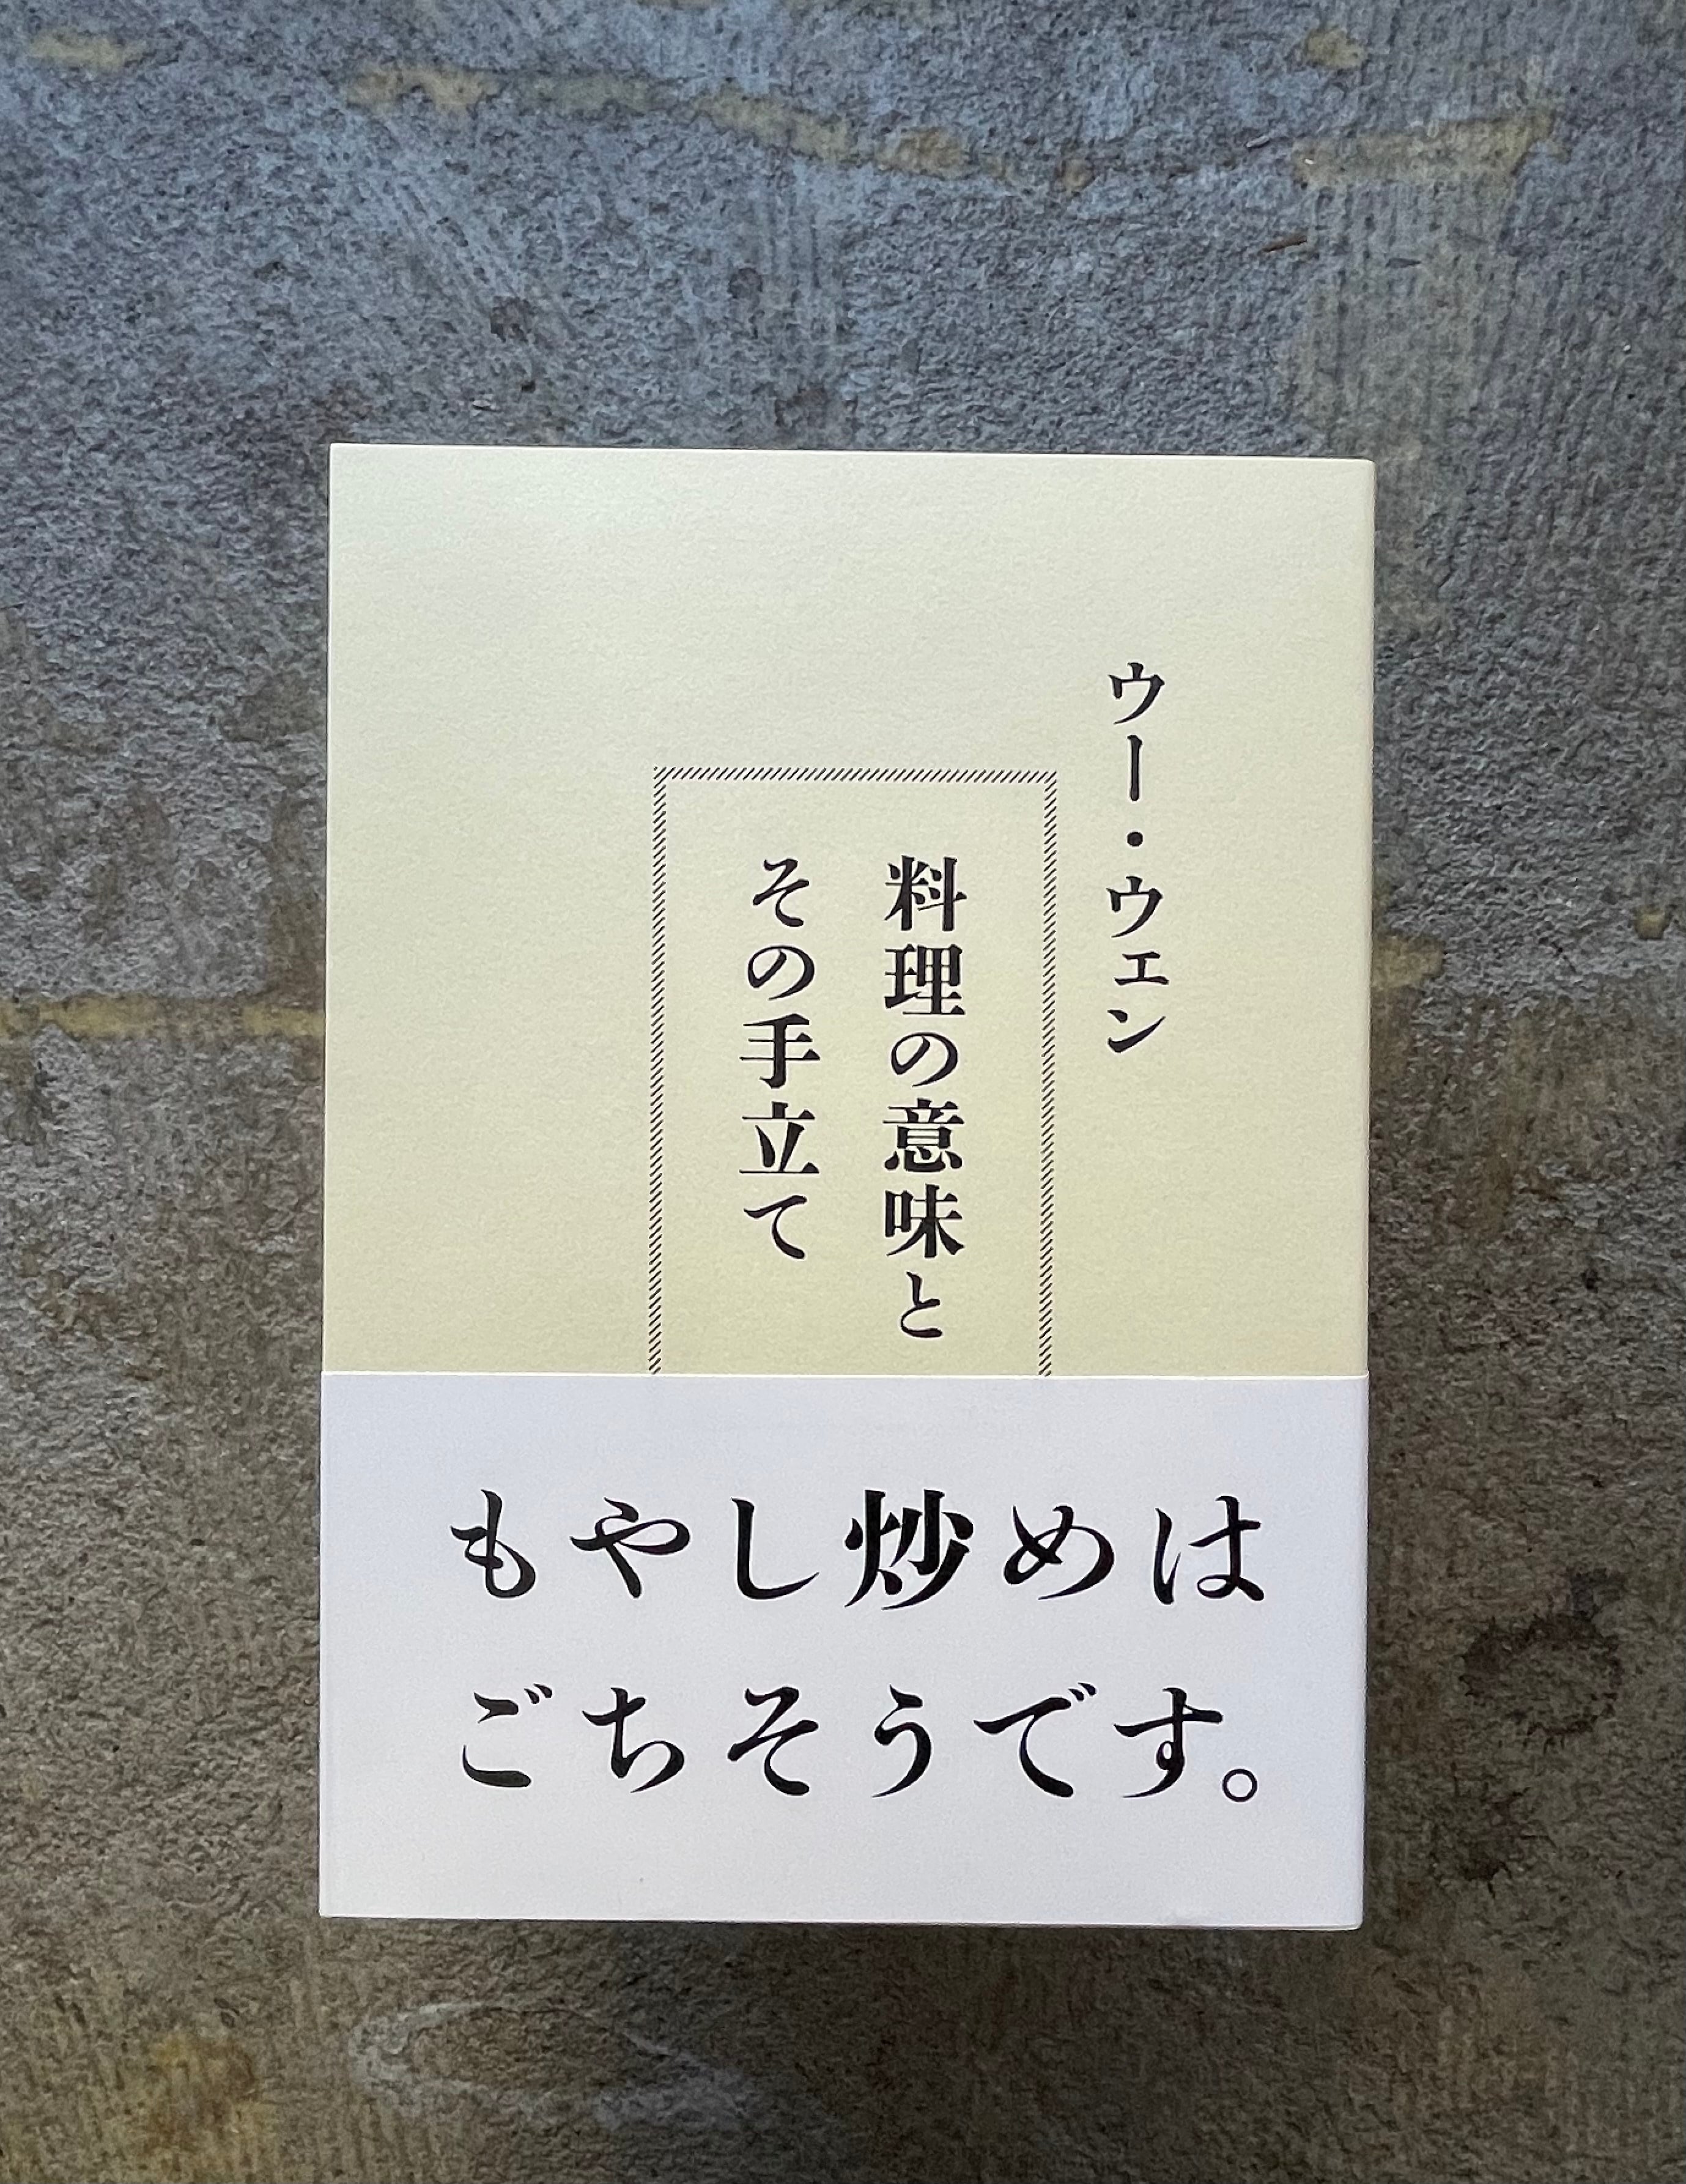 ウー・ウェン
料理の意味と
その手立て
もやし炒めは
ごちそうです。